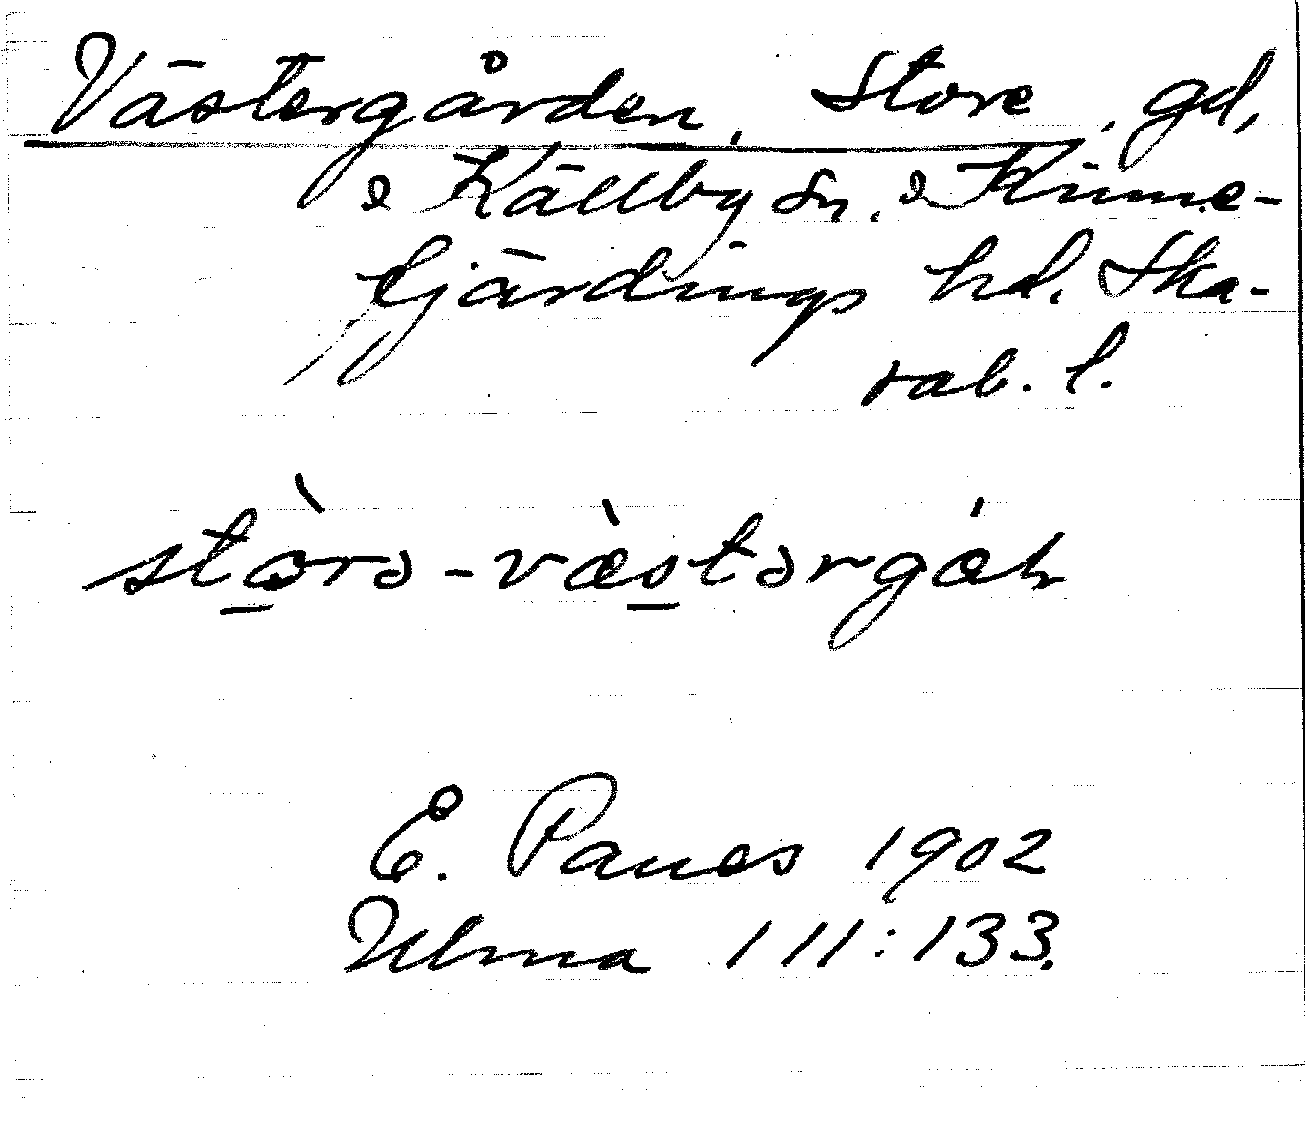 Västergården, Store, gd,
i Källby sn. i Kinne-
fjärdings hd. Ska-
rab. l.
stòrə-væ̀stərgáh
E. Panes 1902
Ulma 111:133.